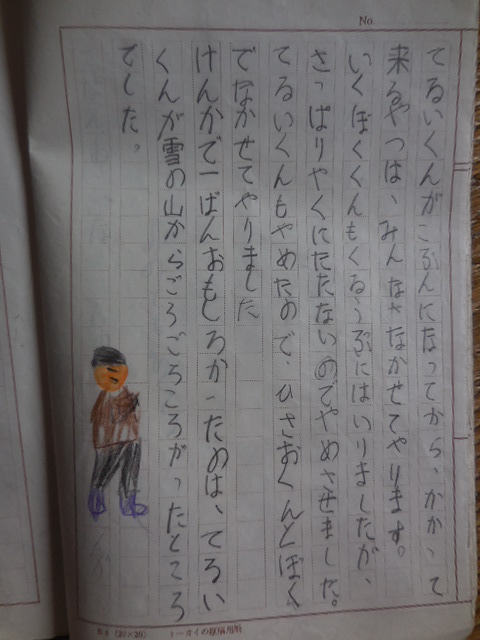 No.
てるいくんがこぶんになってから、かかって
来るやつは、みんななかせてやります。
いくぼくくんもくるうぶにはいりましたが、
さっぱりやくにたたないのでやめさせました。
てるいくんもやめたので、ひさおくんとぼく
でなかせてやりました
けんかで一ばんおもしろかったのは、てるい
くんが雪の山からごろごろころがったところ
でした。
(20×20)
トーカイの原稿用紙